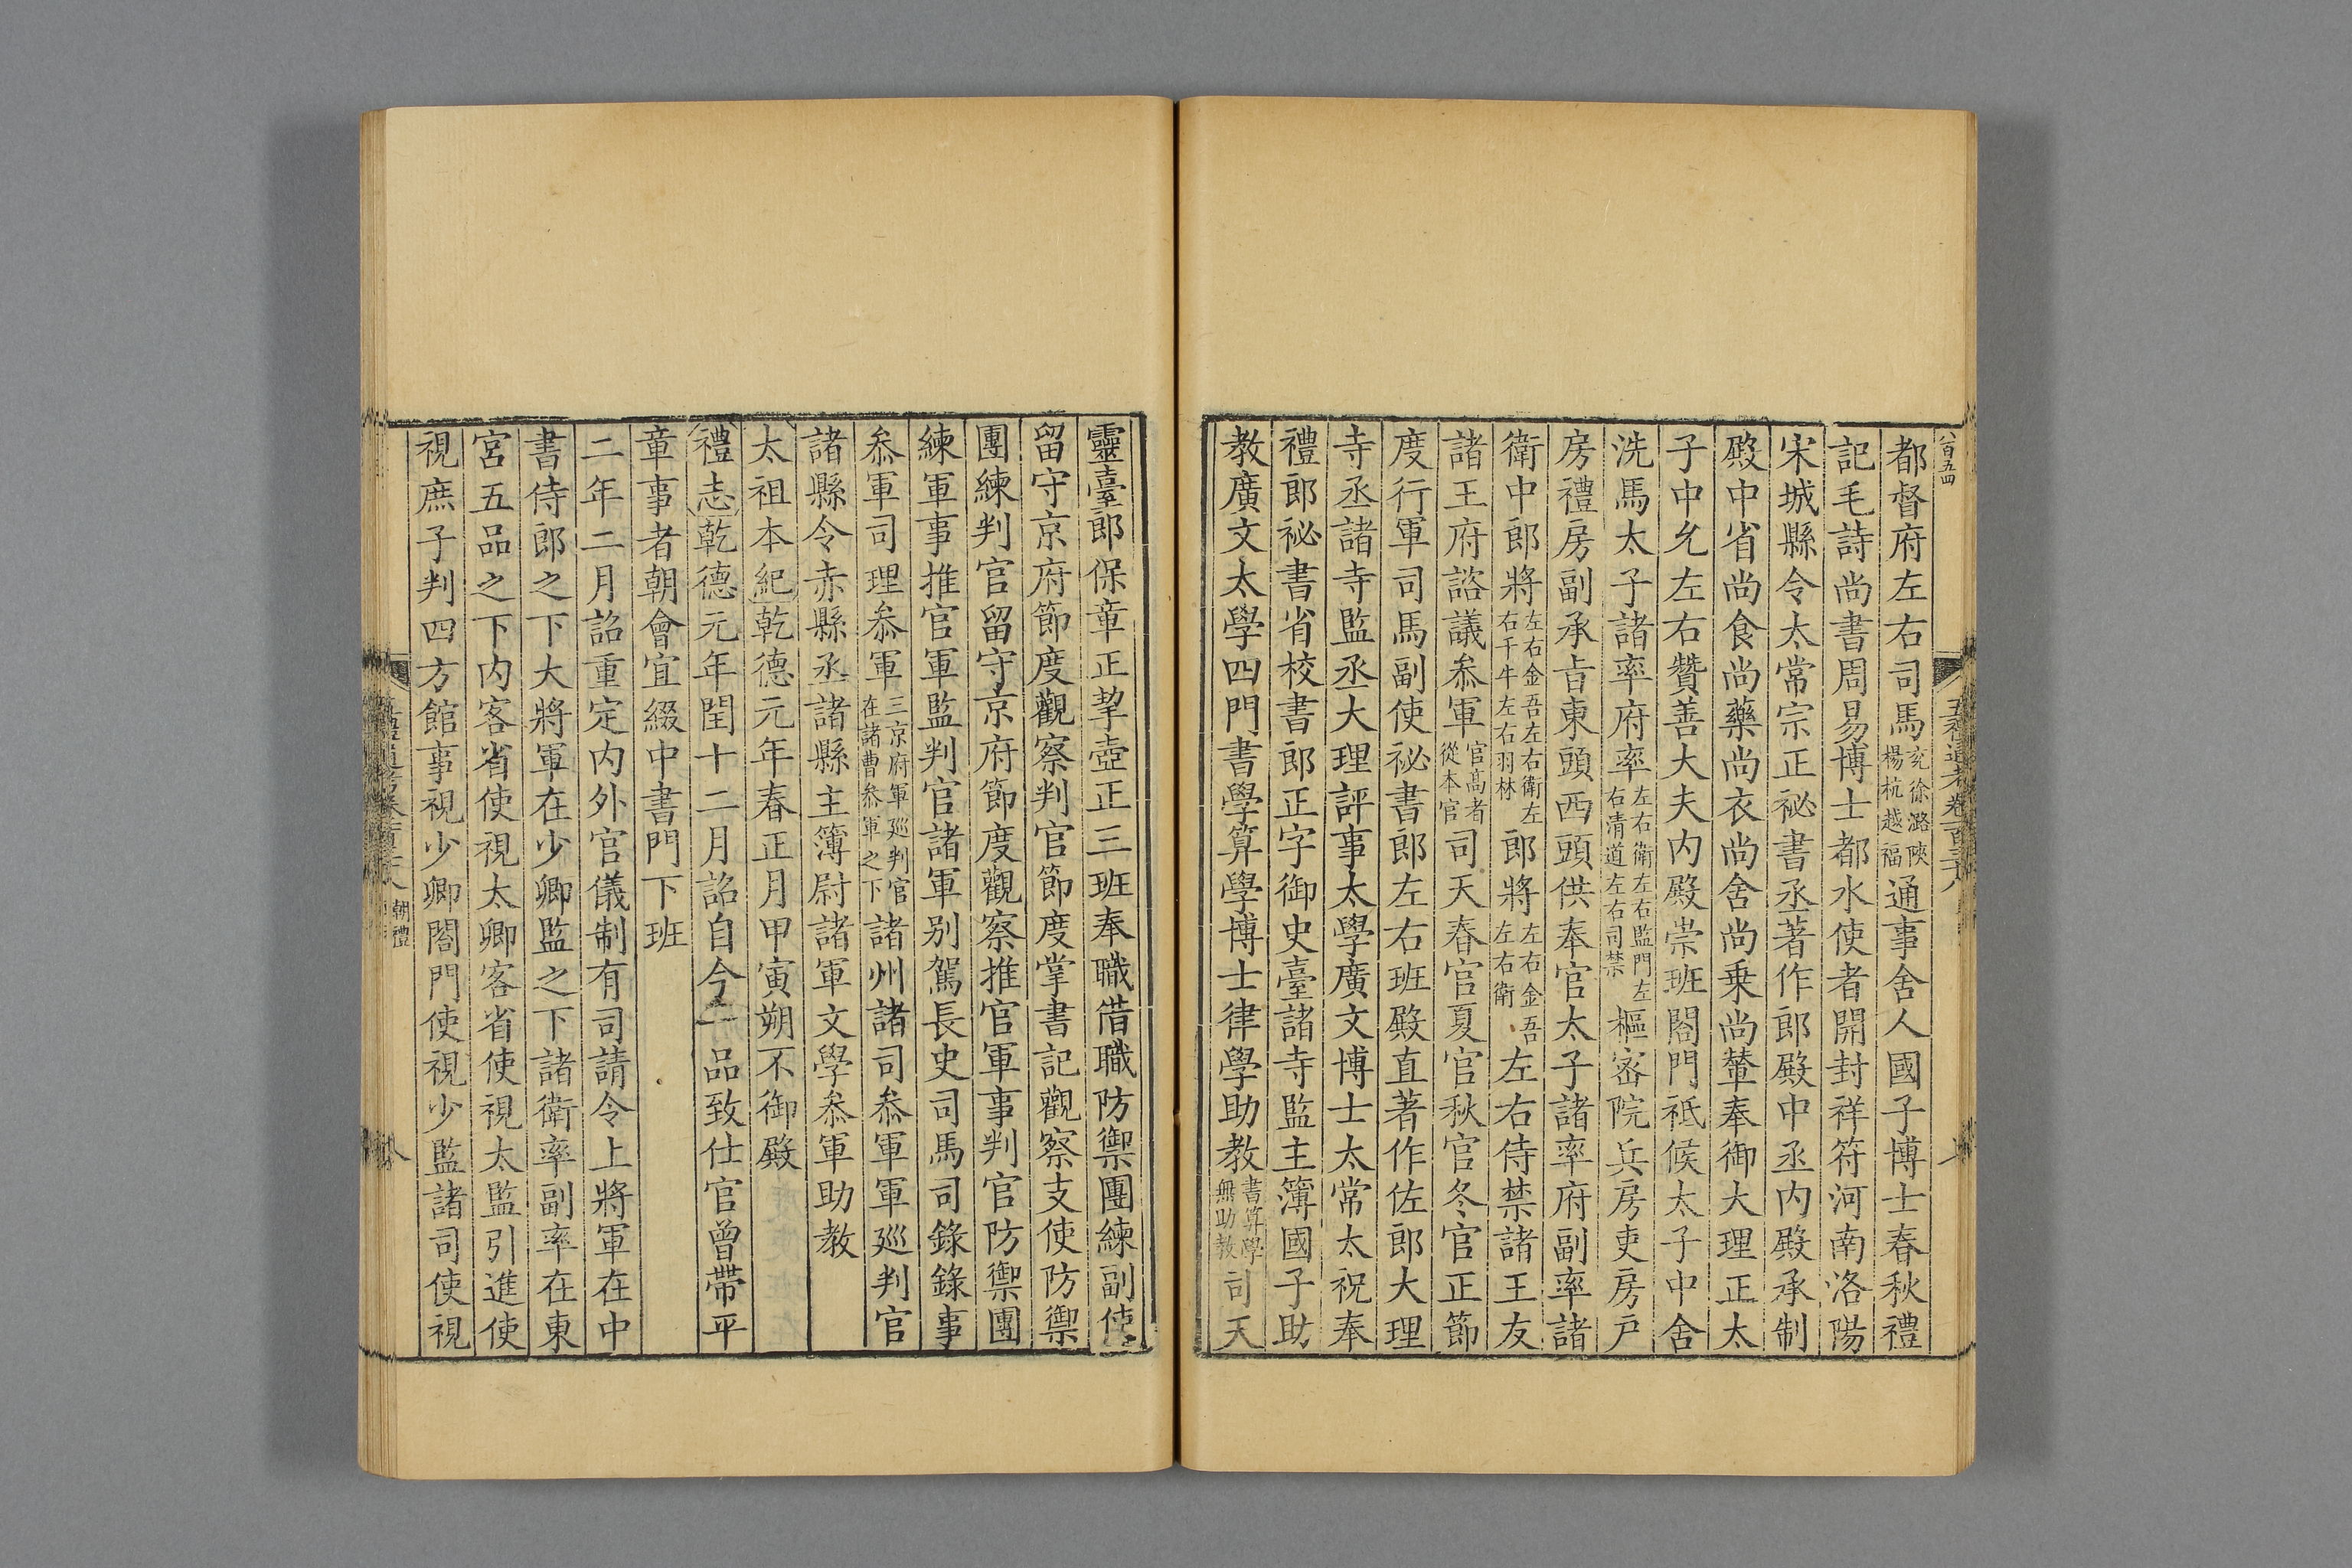 八百五四
五禮通考卷一百三十八
都督府左右司馬兖徐潞陝楊杭越福通事舍人國子博士春秋禮
記毛詩尚書周易博士都水使者開封祥符河南洛陽
宋城縣令太常宗正祕書丞著作郎殿中丞内殿承制
殿中省尚食尚藥尚衣尚舍尚乗尚輦奉御大理正太
子中允左右贊善大夫内殿崇班閤門祗候太子中舍
洗馬太子諸率府率左右衛左右監門左右清道左右司禁樞宻院兵房吏房戸
房禮房副承㫖東頭西頭供奉官太子諸率府副率諸
衛中郎將左右金吾左右衛左右千牛左右羽林郎將左右金吾左右衛左右侍禁諸王友
諸王府諮議叅軍官髙者從本官司天春官夏官秋官冬官正節
度行軍司馬副使祕書郎左右班殿直著作佐郎大理
寺丞諸寺監丞大理評事太學廣文博士太常太祝奉
禮郎祕書省校書郎正字御史臺諸寺監主簿國子助
教廣文太學四門書學算學博士律學助教書算學無助教司天
靈臺郎保章正挈壺正三班奉職借職防禦團練副使
留守京府節度觀察判官節度掌書記觀察支使防禦
團練判官留守京府節度觀察推官軍事判官防禦團
練軍事推官軍監判官諸軍别駕長史司馬司錄錄事
叅軍司理叅軍三京府軍廵判官在諸曹叅軍之下諸州諸司叅軍軍廵判官
諸縣令赤縣丞諸縣主簿尉諸軍文學叅軍助教
太祖本紀乾德元年春正月甲寅朔不御殿
禮志乾德元年閏十二月詔自今一品致仕官曾帶平
章事者朝會宜綴中書門下班
二年二月詔重定内外官儀制有司請令上將軍在中
書侍郎之下大將軍在少卿監之下諸衛率副率在東
宮五品之下内客省使視太卿客省使視太監引進使
視庶子判四方館事視少卿閤門使視少監諸司使視
朝禮
八